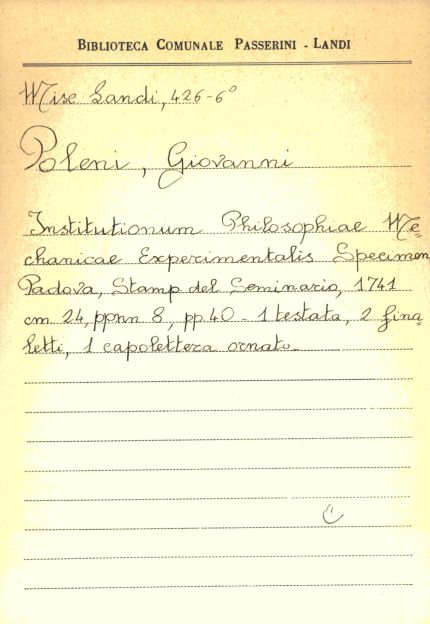 BIBLIOTECA COMUNALE PASSERINI - LANDI
Misc Landi, 426-6°
Poleni, Giovanni
Institutionum Philosophiae Me=
chanicae Experimentalis Specimen
Padova, Stamp del Seminario, 1741
cm 24, ppnn 8, pp. 40 - 1 testata, 2 fina=
letti, 1 capolettera ornato.
C